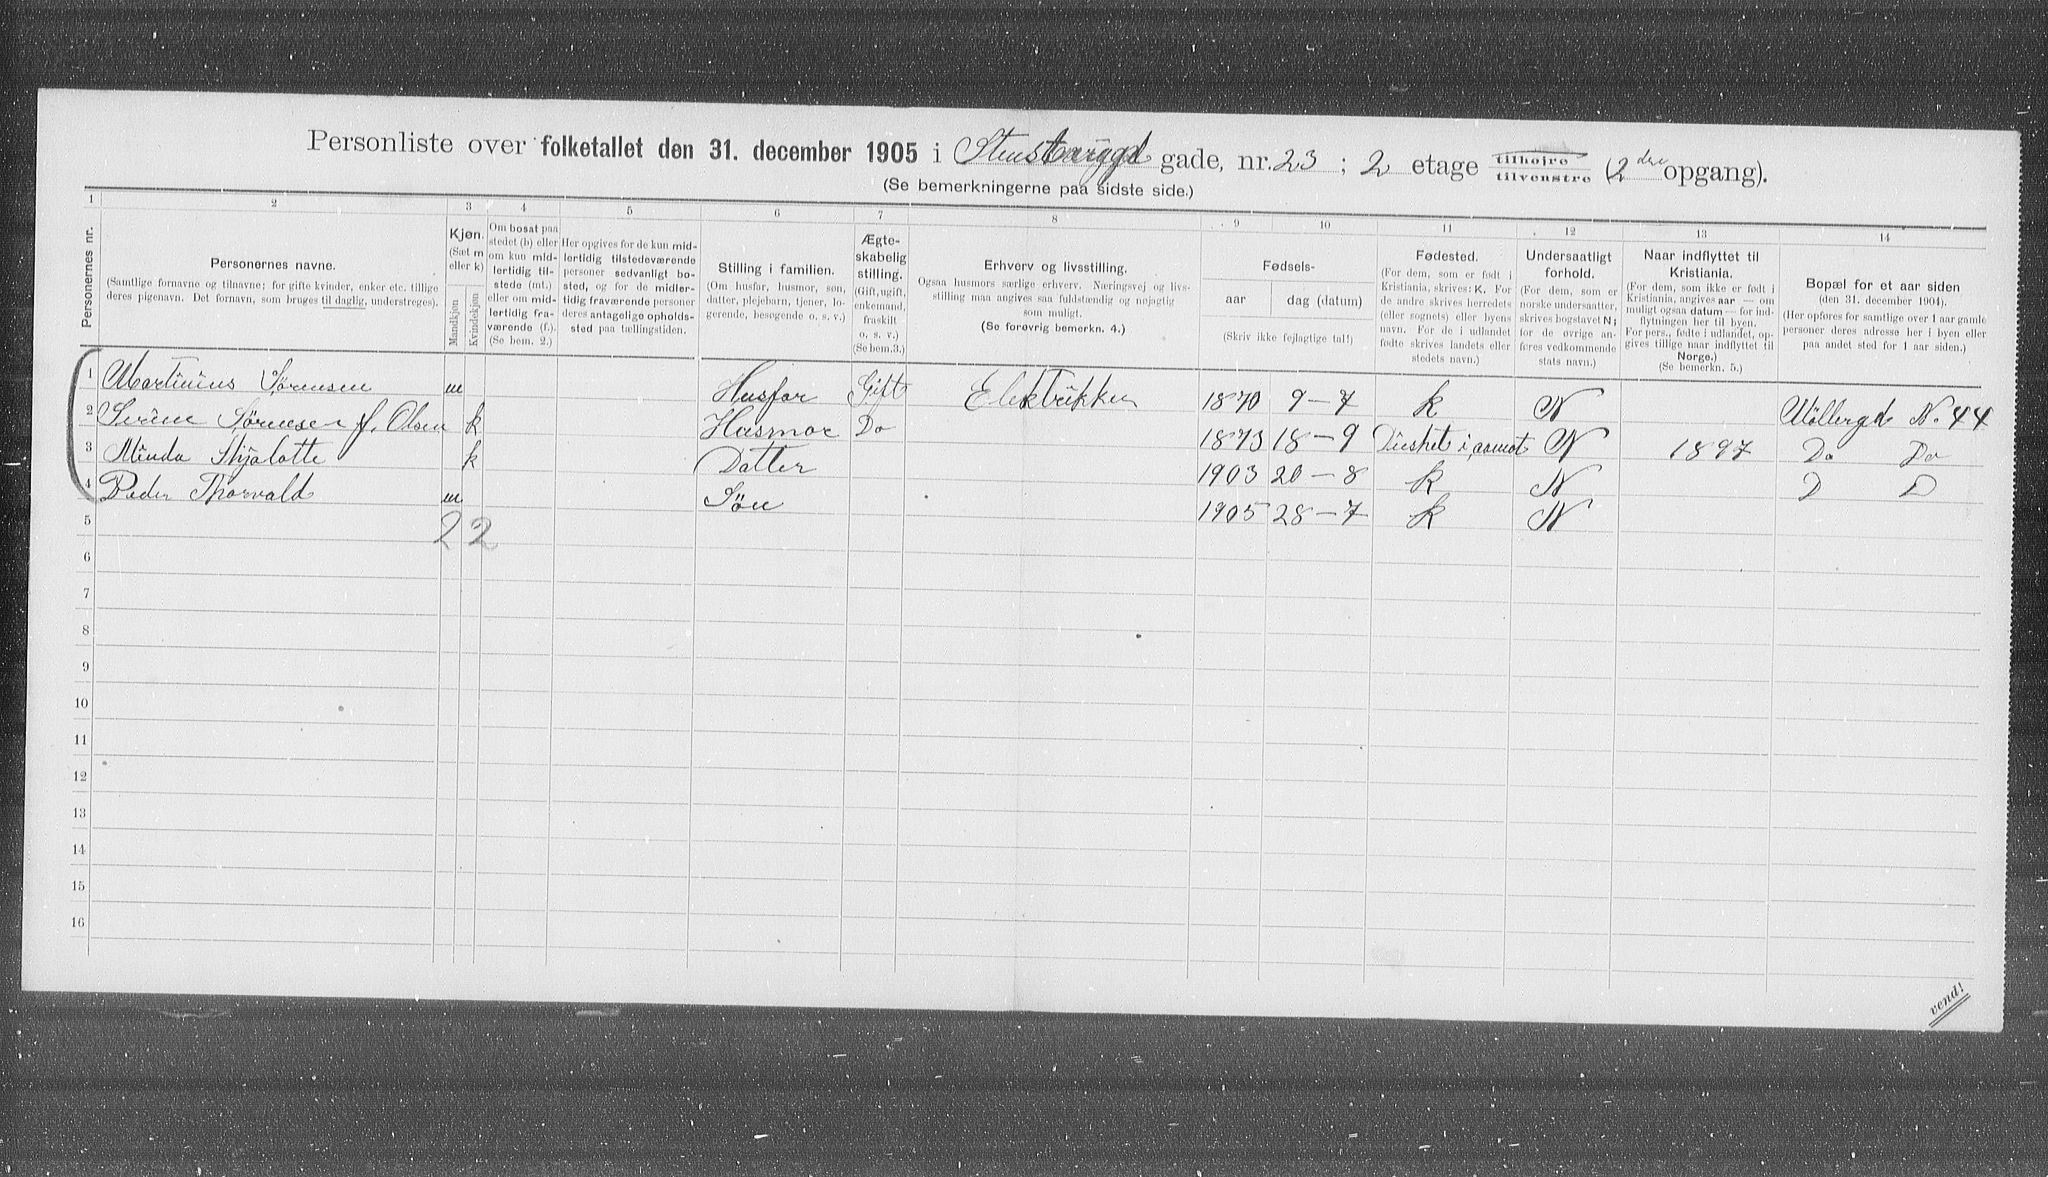 Personliste over folketallet den 31. december 1905 i Stensberggd gade, nr. 23 ; 2 etage tilhøjre tilvenstre (2den opgang).
(Se bemerkningerne paa sidste side.)
1 2 3 4 5 6 7 8 9 10 11 12 13 14
Personernes nr.
Personernes navne.
(Samtlige fornavne og tilnavne; for gifte kvinder, enker etc. tillige
deres pigenavn. Det fornavn, som bruges til daglig, understreges).
Kjøn.
(Sæt m
eller k)
Mandkjøn
Kvindekjøn
Om bosat paa
stedet (b) eller
om kun mid-
lertidig til-
stede (mt.)
eller om mid-
lertidig fra-
værende (f.).
(Se bem. 2.)
Her opgives for de kun mid-
lertidig tilstedeværende
personer sedvanligt bo-
sted, og for de midler-
tidig fraværende personer
deres antagelige opholds-
sted paa tællingstiden.
Stilling i familien.
(Om husfar, husmor, søn,
datter, plejebarn, tjener, lo-
gerende, besøgende o. s. v.)
Ægte-
skabelig
stilling.
(Gift, ugift,
enkemand,
fraskilt
o. s. v.)
(Se bem. 3.)
Erhverv og livsstilling.
Ogsaa husmors særlige erhverv. Næringsvej og livs-
stilling maa angives saa fuldstændig og nøjagtig
som muligt.
(Se forøvrig bemerkn. 4.)
Fødsels-
aar dag (datum)
(Skriv ikke fejlagtige tal!)
Fødested.
(For dem, som er født i
Kristiania, skrives: K. For
de andre skrives herredets
(eller sognets) eller byens
navn. For de i udlandet
fødte skrives landets eller
stedets navn.)
Undersaatligt
forhold.
(For dem, som er
norske undersaatter,
skrives bogstavet N;
for de øvrige an-
føres vedkommende
stats navn.)
Naar indflyttet til
Kristiania.
(For dem, som ikke er født i
Kristiania, angives aar — om
muligt ogsaa datum — for ind-
flytningen her til byen.
For pers., fødte i udlandet, op-
gives tillige naar indflyttet til
Norge.)
(Se bemerkn. 5.)
Bopæl for et aar siden
(den 31. december 1904).
(Her opføres for samtlige over 1 aar gamle
personer deres adresse her i byen eller
paa andet sted for 1 aar siden.)
1 Martinius Sørensen m Husfar Gift Elektrikker 1870 9-7 k N Møllergd N. 44
2 Serine Sørensen f. Olsen k Husmor Do 1873 18-9 i aamot N 1897 Do Do
3 Minda k Datter 1903 20-8 k N D D
4 Peder Thorvald m Søn 1905 28-7 k N
5 2 2
6
7
8
9
10
11
12
13
14
15
16
vend!